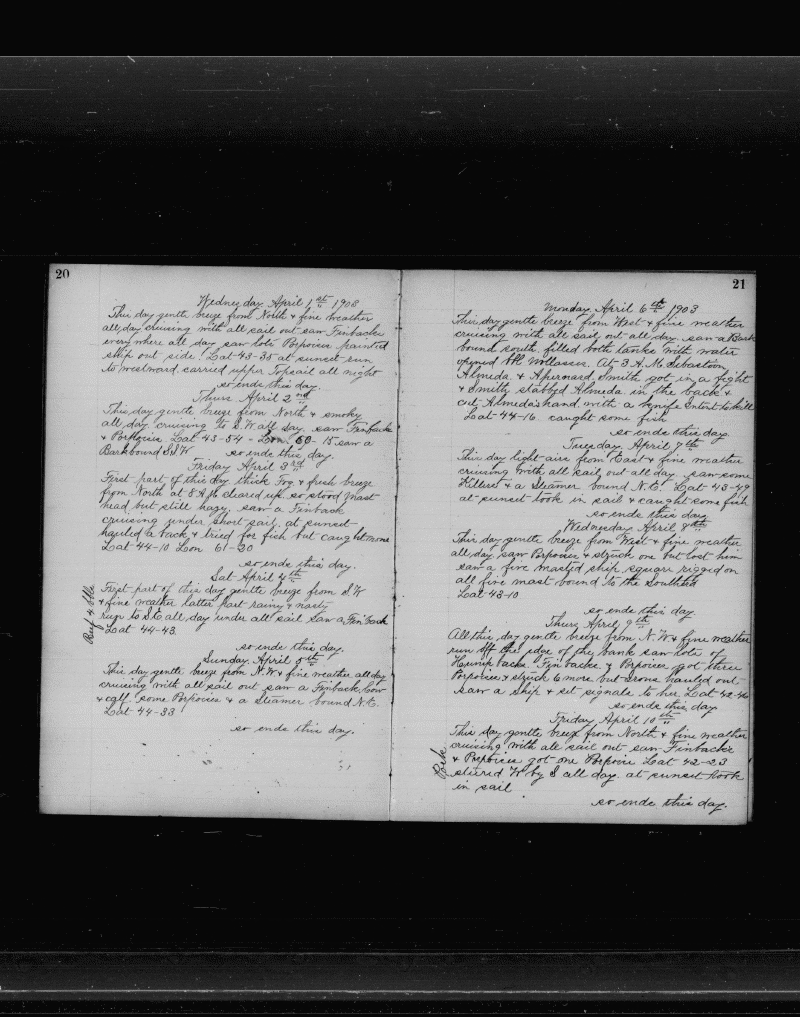 20
Wednesday April 1st 1903
This day gentle breeze from North & fine weather
all day cruising with all sail out saw Finbacks
every where all day saw lots Porpoises painted
ship out side. Lat 43-35 at sunset run
to westward carried upper Topsail all night
so ends this day.
Thurs April 2nd
This day gentle breeze from North & smoky
all day cruising to S.W. all day. saw Finback
& Porpoises Lat 43-54 - Lon 60-15 saw a
Bark bound S.S.W so ends this day.
Friday April 3rd
First part of this day thick Fog & fresh breeze
from North at 8 A.M. cleared up. so stood mast
head but still hazy. saw a Finback
cruising under short sail. at sunset
hauled a back & tried for fish but caught none
Lat 44-10 Lon 61-20
so ends this day.
Sat April 4th
First part of this day gentle breeze from S.W
& fine weather latter part rainy & nasty
run to S.E. all day under all sail saw a Finback
Lat 44-43.
Beef & bbls
so ends this day.
Sunday April 5th
This day gentle breeze from N.W & fine weather all day
cruising with all sail out saw a Finback, Cow
& calf. some Porpoises & a Steamer bound N.E.
Lat 44-33
so ends this day.
21
Monday April 6th 1903
This day gentle breeze from West & fine weather
cruising with all sail out all day. saw a Bark
bound south. filled both tanks with water
opened bbl Molasses. At 3 A.M. Sebastion
Almeda & Apernard Smith got in a fight
& Smith stabbed Almeda in the back &
cut Almeda's hand with a knife entent to kill
Lat 44-16. caught some fish
so ends this day.
Tuesday April 7th
This day light airs from East & fine weather
cruising with all sail out all day saw some
Killers & a Steamer bound N.E. Lat 43-49
at sunset took in sail & caught some fish
so ends this day
Wednesday April 8th
This day gentle breeze from West & fine weather
all day saw Porpoises & struck one but lost him
saw a five masted ship square rigged on
all five mast bound to the Southerd
Lat 43-10
so ends this day
Thurs April 9th
All this day gentle breeze from N.W. & fine weather
run off the edge of the bank saw lots of
Hump backs. Fin backs & Porpoises got three
Porpoises & struck 6 more but Irons hauled out
saw a ship & set signals to her Lat 42-46
so ends this day
Friday April 10th
This day gentle breeze from North & fine weather
cruising with all sail out saw Finbacks
& Porpoises got one Porpoise Lat 42-23
Pork
steered W by S all day. at sunset took
in sail
so ends this day.